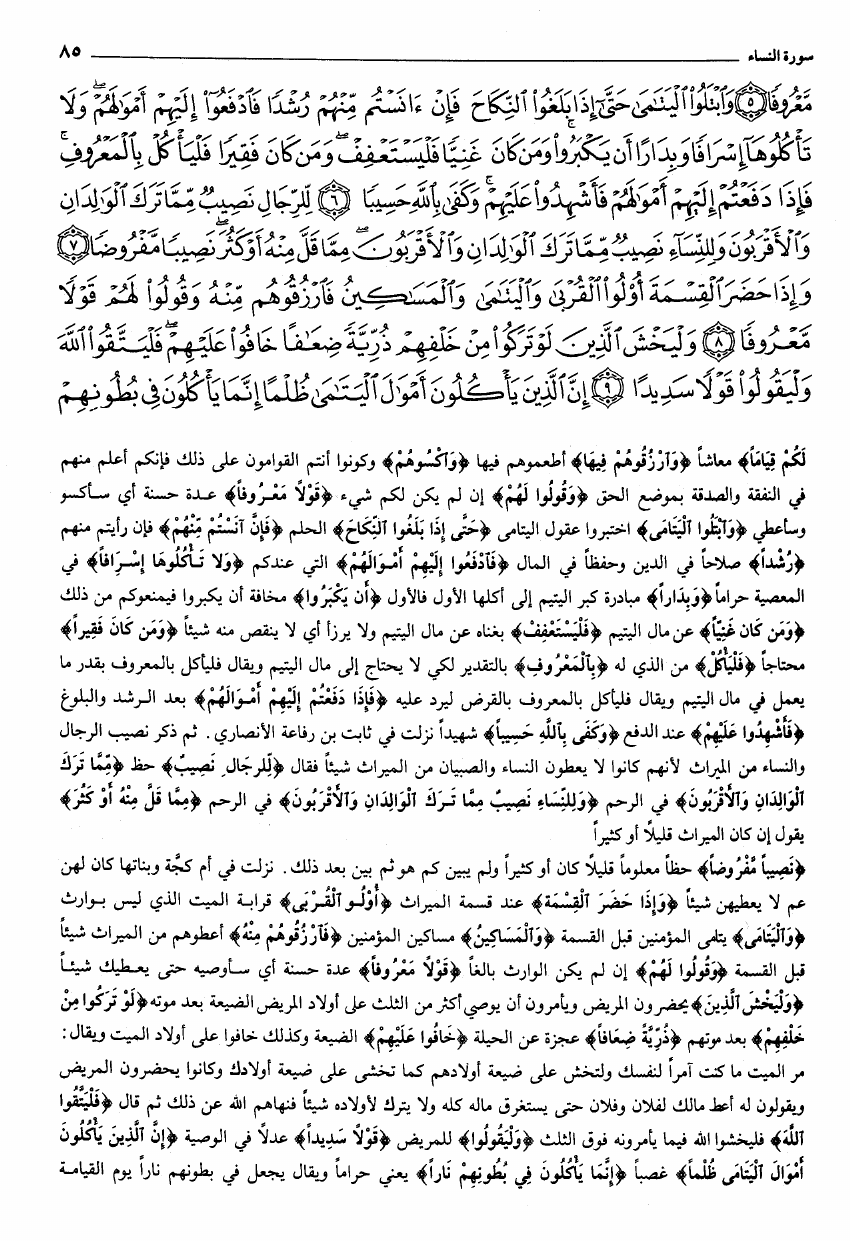 سورة النساء ٨٥
مَّعْرُوفًا ٥ وَٱبْتَلُوا۟ ٱلْيَتَـٰمَىٰ حَتَّىٰٓ إِذَا بَلَغُوا۟ ٱلنِّكَاحَ فَإِنْ ءَانَسْتُم مِّنْهُمْ رُشْدًا فَٱدْفَعُوٓا۟ إِلَيْهِمْ أَمْوَٰلَهُمْ ۖ وَلَا
تَأْكُلُوهَآ إِسْرَافًا وَبِدَارًا أَن يَكْبَرُوا۟ ۚ وَمَن كَانَ غَنِيًّا فَلْيَسْتَعْفِفْ ۖ وَمَن كَانَ فَقِيرًا فَلْيَأْكُلْ بِٱلْمَعْرُوفِ ۚ
فَإِذَا دَفَعْتُمْ إِلَيْهِمْ أَمْوَٰلَهُمْ فَأَشْهِدُوا۟ عَلَيْهِمْ ۚ وَكَفَىٰ بِٱللَّهِ حَسِيبًا ٦ لِّلرِّجَالِ نَصِيبٌ مِّمَّا تَرَكَ ٱلْوَٰلِدَانِ
وَٱلْأَقْرَبُونَ وَلِلنِّسَآءِ نَصِيبٌ مِّمَّا تَرَكَ ٱلْوَٰلِدَانِ وَٱلْأَقْرَبُونَ مِمَّا قَلَّ مِنْهُ أَوْ كَثُرَ ۚ نَصِيبًا مَّفْرُوضًا ٧
وَإِذَا حَضَرَ ٱلْقِسْمَةَ أُو۟لُوا۟ ٱلْقُرْبَىٰ وَٱلْيَتَـٰمَىٰ وَٱلْمَسَـٰكِينُ فَٱرْزُقُوهُم مِّنْهُ وَقُولُوا۟ لَهُمْ قَوْلًا
مَّعْرُوفًا ٨ وَلْيَخْشَ ٱلَّذِينَ لَوْ تَرَكُوا۟ مِنْ خَلْفِهِمْ ذُرِّيَّةً ضِعَـٰفًا خَافُوا۟ عَلَيْهِمْ ۖ فَلْيَتَّقُوا۟ ٱللَّهَ
وَلْيَقُولُوا۟ قَوْلًا سَدِيدًا ٩ إِنَّ ٱلَّذِينَ يَأْكُلُونَ أَمْوَٰلَ ٱلْيَتَـٰمَىٰ ظُلْمًا إِنَّمَا يَأْكُلُونَ فِى بُطُونِهِمْ
لَكُمْ قِيَاماً﴾ معاشاً ﴿وَٱرْزُقُوهُمْ فِيهَا﴾ أطعموهم فيها ﴿وَٱكْسُوهُمْ﴾ وكونوا أنتم القوامون على ذلك فإنكم أعلم منهم
في النفقة والصدقة بموضع الحق ﴿وَقُولُوا لَهُمْ﴾ إن لم يكن لكم شيء ﴿قَوْلاً مَعْرُوفاً﴾ عدة حسنة أي سأكسو
وسأعطي ﴿وَٱبْتَلُوا ٱلْيَتَامَى﴾ اختبروا عقول اليتامى ﴿حَتَّى إِذَا بَلَغُوا ٱلنِّكَاحَ﴾ الحلم ﴿فَإِنْ آنَسْتُمْ مِّنْهُمْ﴾ فإن رأيتم منهم
﴿رُشْداً﴾ صلاحاً في الدين وحفظاً في المال ﴿فَٱدْفَعُوا إِلَيْهِمْ أَمْوَالَهُمْ﴾ التي عندكم ﴿وَلا تَأْكُلُوهَا إِسْرَافاً﴾ في
المعصية حراماً ﴿وَبِدَاراً﴾ مبادرة كبر اليتيم إلى أكلها الأول فالأول ﴿أَن يَكْبَرُوا﴾ مخافة أن يكبروا فيمنعوكم من ذلك
﴿وَمَن كَانَ غَنِيّاً﴾ عن مال اليتيم ﴿فَلْيَسْتَعْفِفْ﴾ بغناه عن مال اليتيم ولا يرزأ أي لا ينقص منه شيئاً ﴿وَمَن كَانَ فَقِيراً﴾
محتاجاً ﴿فَلْيَأْكُلْ﴾ من الذي له ﴿بِٱلْمَعْرُوفِ﴾ بالتقدير لكي لا يحتاج إلى مال اليتيم ويقال فليأكل بالمعروف بقدر ما
يعمل في مال اليتيم ويقال فليأكل بالمعروف بالقرض ليرد عليه ﴿فَإِذَا دَفَعْتُمْ إِلَيْهِمْ أَمْوَالَهُمْ﴾ بعد الرشد والبلوغ
﴿فَأَشْهِدُوا عَلَيْهِمْ﴾ عند الدفع ﴿وَكَفَى بِٱللَّهِ حَسِيباً﴾ شهيداً نزلت في ثابت بن رفاعة الأنصاري. ثم ذكر نصيب الرجال
والنساء من الميراث لأنهم كانوا لا يعطون النساء والصبيان من الميراث شيئاً فقال ﴿لِّلرِّجَالِ نَصِيبٌ﴾ حظ ﴿مِّمَّا تَرَكَ
ٱلْوَالِدَانِ وَٱلأَقْرَبُونَ﴾ في الرحم ﴿وَلِلنِّسَاءِ نَصِيبٌ مِمَّا تَرَكَ ٱلْوَالِدَانِ وَٱلأَقْرَبُونَ﴾ في الرحم ﴿مِمَّا قَلَّ مِنْهُ أَوْ كَثُرَ﴾
يقول إن كان الميراث قليلاً أو كثيراً
﴿نَصِيباً مَّفْرُوضاً﴾ حظاً معلوماً قليلاً كان أو كثيراً ولم يبين كم هو ثم بين بعد ذلك. نزلت في أم كجَّة وبناتها كان لهن
عم لا يعطيهن شيئاً ﴿وَإِذَا حَضَرَ ٱلْقِسْمَةَ﴾ عند قسمة الميراث ﴿أُوْلُو ٱلْقُرْبَى﴾ قرابة الميت الذي ليس بوارث
﴿وَٱلْيَتَامَى﴾ يتامى المؤمنين قبل القسمة ﴿وَٱلْمَسَاكِينُ﴾ مساكين المؤمنين ﴿فَٱرْزُقُوهُمْ مِنْهُ﴾ أعطوهم من الميراث شيئاً
قبل القسمة ﴿وَقُولُوا لَهُمْ﴾ إن لم يكن الوارث بالغاً ﴿قَوْلاً مَعْرُوفاً﴾ عدة حسنة أي سأوصيه حتى يعطيك شيئاً
﴿وَلْيَخْشَ ٱلَّذِينَ﴾ يحضرون المريض ويأمرون أن يوصي أكثر من الثلث على أولاد المريض الضيعة بعد موته ﴿لَوْ تَرَكُوا مِنْ
خَلْفِهِمْ﴾ بعد موتهم ﴿ذُرِّيَّةً ضِعَافاً﴾ عجزة عن الحيلة ﴿خَافُوا عَلَيْهِمْ﴾ الضيعة وكذلك خافوا على أولاد الميت ويقال:
مر الميت ما كنت آمراً لنفسك ولتخش على ضيعة أولادهم كما تخشى على ضيعة أولادك وكانوا يحضرون المريض
ويقولون له أعط مالك لفلان وفلان حتى يستغرق ماله كله ولا يترك لأولاده شيئاً فنهاهم الله عن ذلك ثم قال ﴿فَلْيَتَّقُوا
ٱللَّهَ﴾ فليخشوا الله فيما يأمرونه فوق الثلث ﴿وَلْيَقُولُوا﴾ للمريض ﴿قَوْلاً سَدِيداً﴾ عدلاً في الوصية ﴿إِنَّ ٱلَّذِينَ يَأْكُلُونَ
أَمْوَالَ ٱلْيَتَامَى ظُلْماً﴾ غصباً ﴿إِنَّمَا يَأْكُلُونَ فِي بُطُونِهِمْ نَاراً﴾ يعني حراماً ويقال يجعل في بطونهم ناراً يوم القيامة